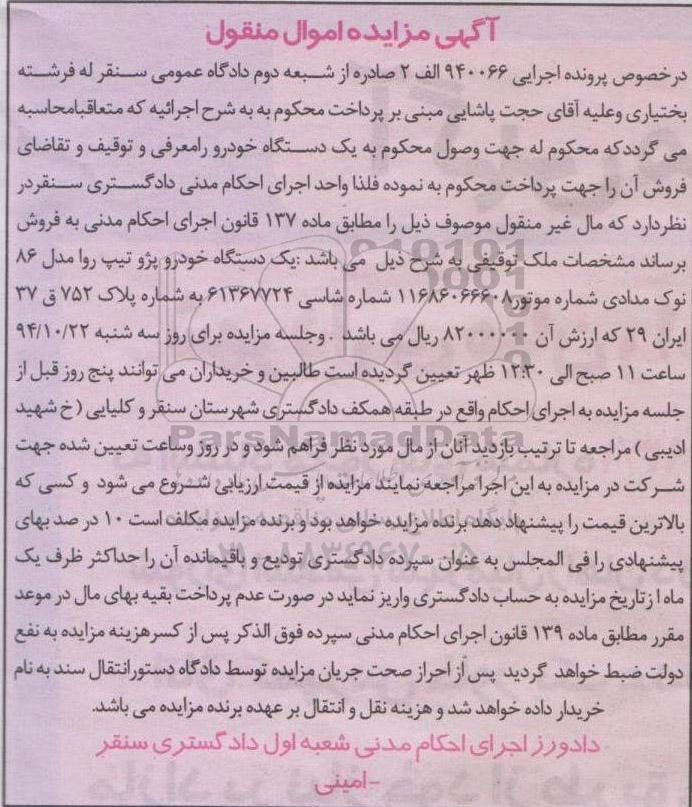 آگهی مزایده اموال منقول
درخصوص پرونده اجرایی ۹۴۰۰۶۶ الف ۲ صادره از شعبه دوم دادگاه عمومی سنقر له فرشته
بختیاری وعلیه آقای حجت پاشایی مبنی بر پرداخت محکوم به به شرح اجرائیه که متعاقبامحاسبه
می گرددکه محکوم له جهت وصول محکوم به یک دستگاه خودرو رامعرفی و توقیف و تقاضای
فروش آن را جهت پرداخت محکوم به نموده فلذا واحد اجرای احکام مدنی دادگستری سنقردر
نظردارد که مال غیر منقول موصوف ذیل را مطابق ماده ۱۳۷ قانون اجرای احکام مدنی به فروش
برساند مشخصات ملک توقیفی به شرح ذیل می باشد :یک دستگاه خودرو پژو تیپ روا مدل ۸۶
نوک مدادی شماره موتور۱۱۶۸۶۰۶۶۶۰۸ شماره شاسی ۶۱۳۶۷۷۲۴ به شماره پلاک ۷۵۲ ق ۳۷
ایران ۲۹ که ارزش آن ۸۲۰۰۰۰۰۰ ریال می باشد . وجلسه مزایده برای روز سه شنبه ۹۴/۱۰/۲۲
ساعت ۱۱ صبح الی ۱۲:۳۰ ظهر تعیین گردیده است طالبین و خریداران می توانند پنج روز قبل از
جلسه مزایده به اجرای احکام واقع در طبقه همکف دادگستری شهرستان سنقر و کلیایی ( خ شهید
ادیبی ) مراجعه تا ترتیب بازدید آنان از مال مورد نظر فراهم شود و در روز وساعت تعیین شده جهت
شرکت در مزایده به این اجرا مراجعه نمایند مزایده از قیمت ارزیابی شروع می شود و کسی که
بالاترین قیمت را پیشنهاد دهد برنده مزایده خواهد بود و برنده مزایده مکلف است ۱۰ در صد بهای
پیشنهادی را فی المجلس به عنوان سپرده دادگستری تودیع و باقیمانده آن را حداکثر ظرف یک
ماه ازتاریخ مزایده به حساب دادگستری واریز نماید در صورت عدم پرداخت بقیه بهای مال در موعد
مقرر مطابق ماده ۱۳۹ قانون اجرای احکام مدنی سپرده فوق الذکر پس از کسرهزینه مزایده به نفع
دولت ضبط خواهد گردید پس از احراز صحت جریان مزایده توسط دادگاه دستورانتقال سند به نام
خریدار داده خواهد شد و هزینه نقل و انتقال بر عهده برنده مزایده می باشد.
دادورز اجرای احکام مدنی شعبه اول دادگستری سنقر
-امینی
ParsNamadData